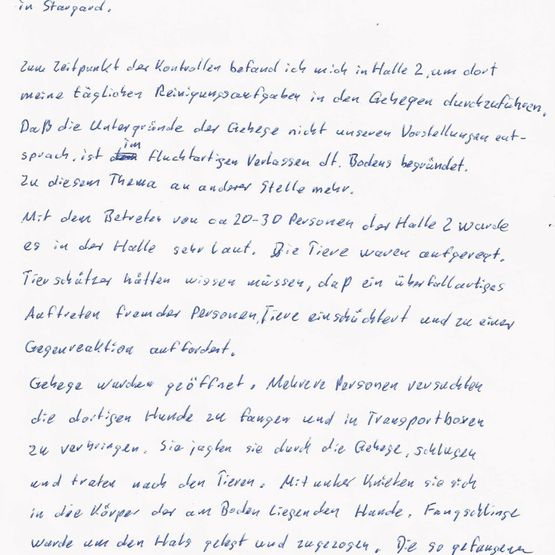 in Stargard.
Zum Zeitpunkt der Kontrollen befand ich mich in Halle 2, um dort
meine täglichen Reinigungsaufgaben in den Gehegen durchzuführen.
Daß die Untergründe der Gehege nicht unseren Vorstellungen ent-
im
sprach, ist fluchtartigen Verlassen dt. Bodens begründet.
Zu diesem Thema an anderer Stelle mehr.
Mit dem Betreten von ca 20-30 Personen der Halle 2 wurde
es in der Halle sehr laut. Die Tiere waren aufgeregt.
Tierschützer hätten wissen müssen, daß ein überfallartiges
Auftreten fremder Personen, Tiere einschüchtert und zu einer
Gegenreaktion auffordert.
Gehege wurden geöffnet. Mehrere Personen versuchten
die dortigen Hunde zu fangen und in Transportboxen
zu verbringen. Sie jagten sie durch die Gehege, schlugen
und traten nach den Tieren. Mitunter knieten sie sich
in die Körper der am Boden liegenden Hunde. Fangschlinge
wurde um den Hals gelegt und zugezogen. Die so gefangenen